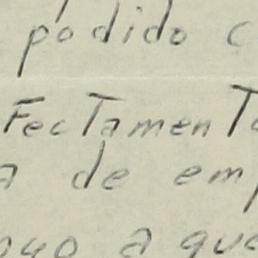 podido c
FecTamenT
a de emp
a que